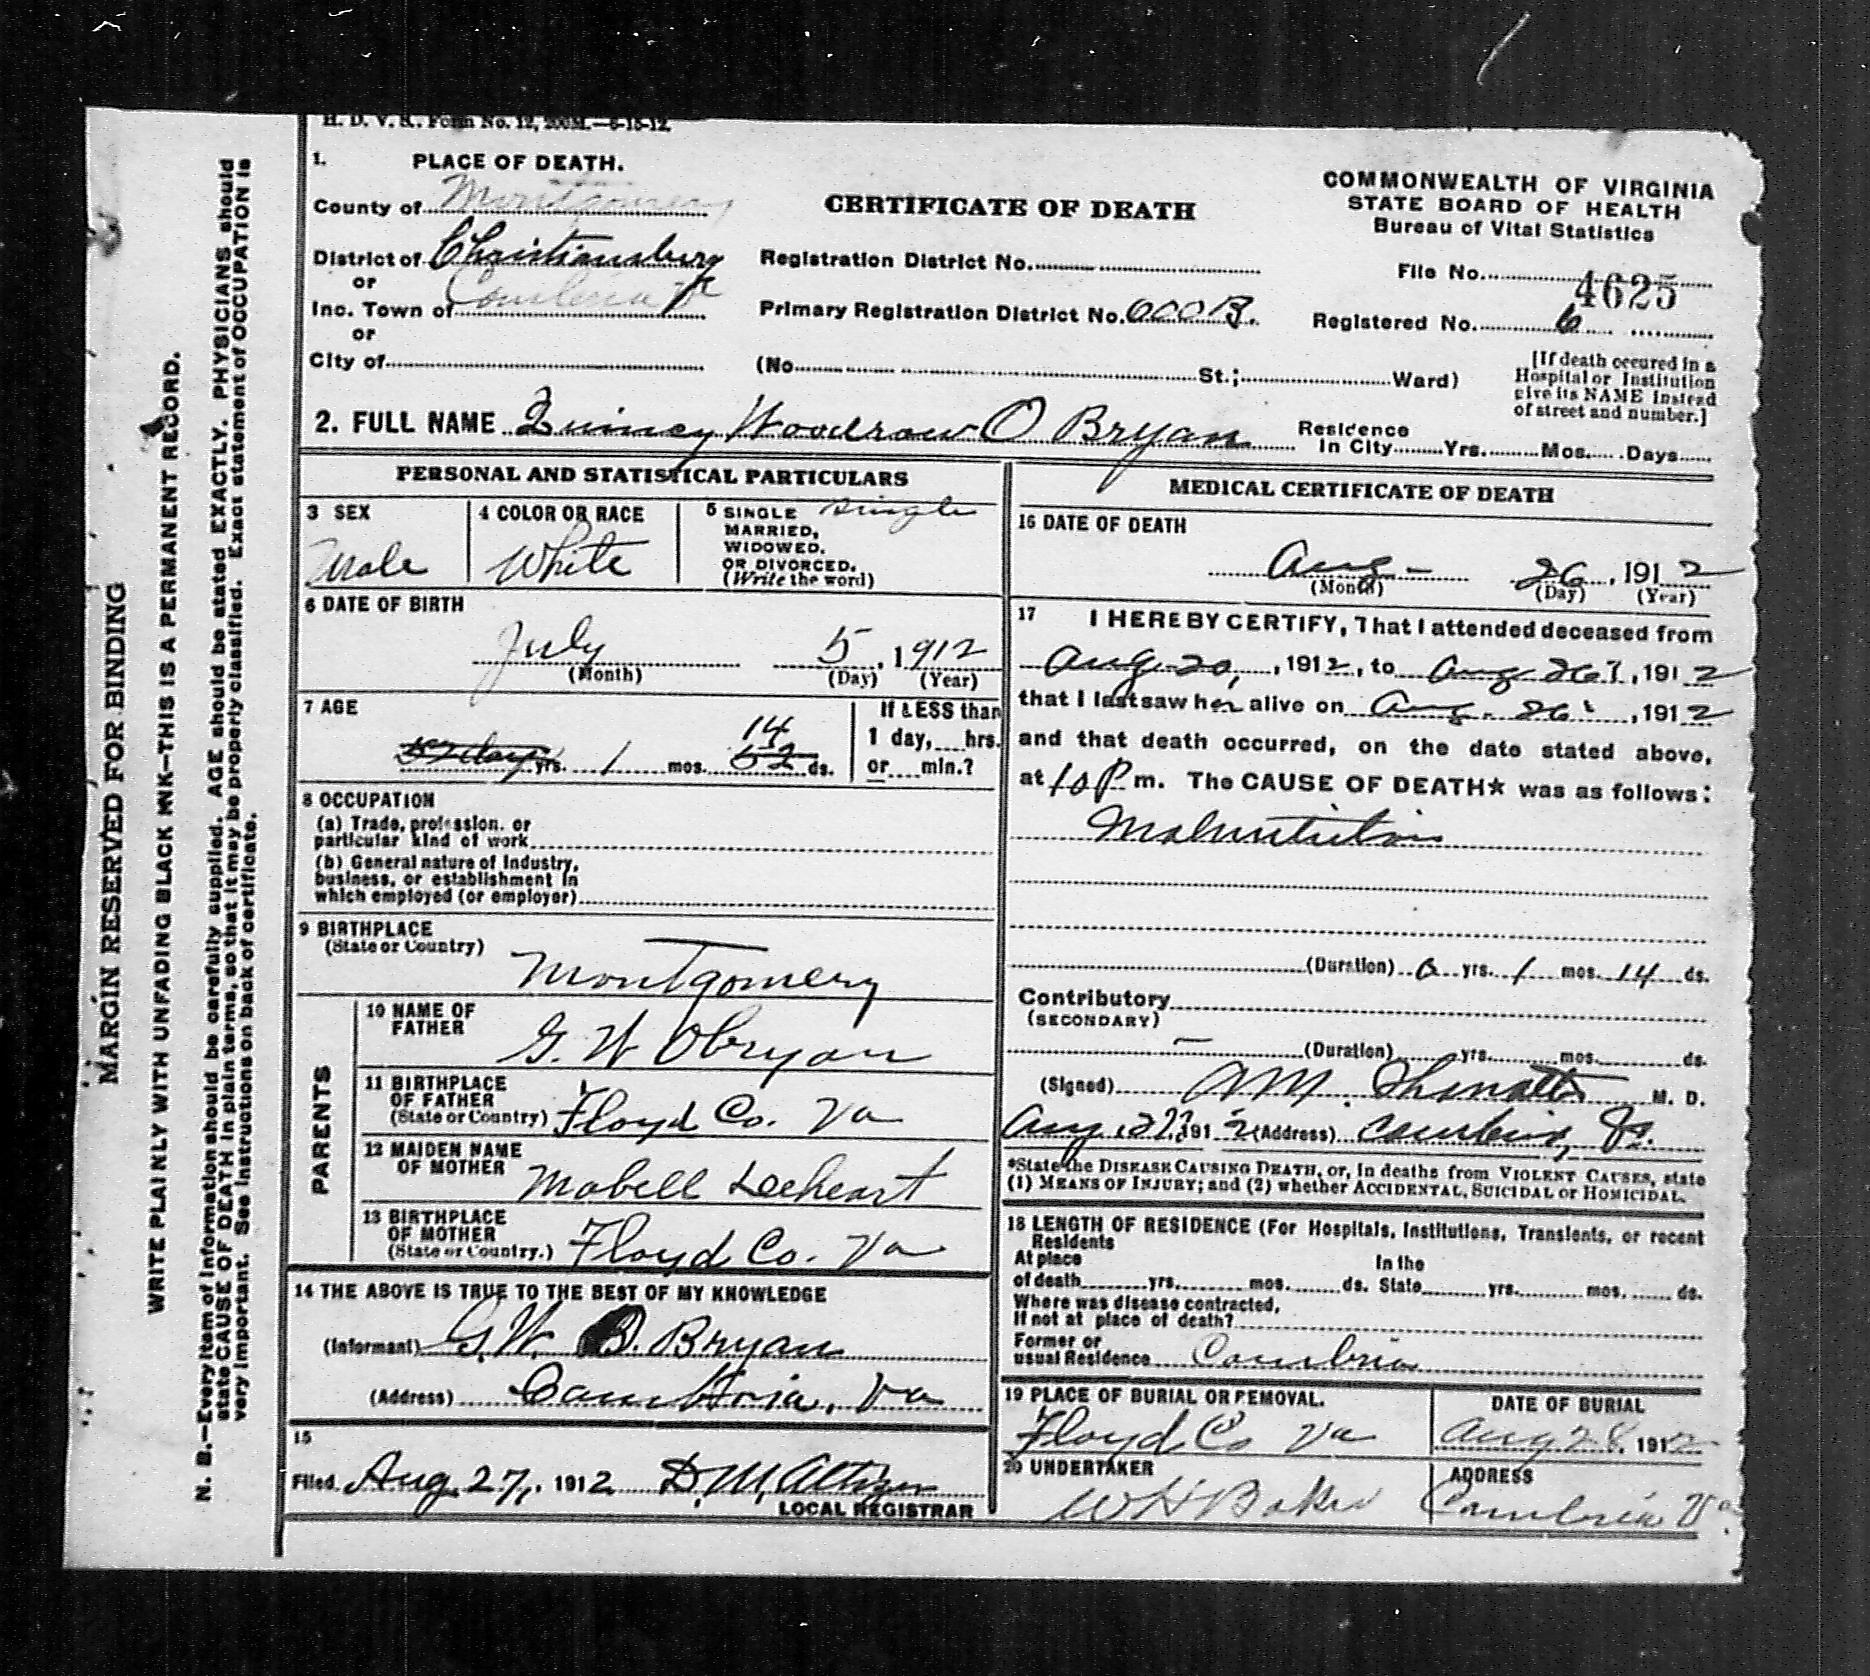 H. D. V. R. Form No. 12, 200M.—6-15-12.
1. PLACE OF DEATH.
County of Montgomery
District of Christiansburg
or
Inc. Town of Cambria Va
or
City of
CERTIFICATE OF DEATH
Registration District No.
Primary Registration District No. 600 B.
(No. St.; Ward)
COMMONWEALTH OF VIRGINIA
STATE BOARD OF HEALTH
Bureau of Vital Statistics
File No. 4625
Registered No. 6
[If death occured in a
Hospital or Institution
give its NAME instead
of street and number.]
2. FULL NAME Quincy Woodrow O Bryan
Residence
In City Yrs. Mos. Days
PERSONAL AND STATISTICAL PARTICULARS
3 SEX
Male
4 COLOR OR RACE
White
5 SINGLE Single
MARRIED,
WIDOWED,
OR DIVORCED.
(Write the word)
6 DATE OF BIRTH
July 5, 1912
(Month) (Day) (Year)
7 AGE
52 days yrs. 1 mos. 52 14 ds.
If LESS than
1 day, hrs.
or min.?
8 OCCUPATION
(a) Trade, profession, or
particular kind of work
(b) General nature of Industry,
business, or establishment in
which employed (or employer)
9 BIRTHPLACE
(State or Country)
Montgomery
PARENTS
10 NAME OF
FATHER
G. W Obryan
11 BIRTHPLACE
OF FATHER
(State or Country) Floyd Co. Va
12 MAIDEN NAME
OF MOTHER
Mabell Leeheart
13 BIRTHPLACE
OF MOTHER
(State or Country.) Floyd Co. Va
14 THE ABOVE IS TRUE TO THE BEST OF MY KNOWLEDGE
(Informant) G.W. O. Bryan
(Address) Cambria, Va
15
Filed Aug 27, 1912 D. M. Altizer
LOCAL REGISTRAR
MEDICAL CERTIFICATE OF DEATH
16 DATE OF DEATH
Aug - 26, 1912
(Month) (Day) (Year)
17 I HEREBY CERTIFY, That I attended deceased from
Aug 20, 1912, to Aug 26, 1912
that I last saw her alive on Aug. 26, 1912
and that death occurred, on the date stated above,
at 10 P m. The CAUSE OF DEATH* was as follows:
Malnutrition
(Duration) 0 yrs. 1 mos. 14 ds.
Contributory
(SECONDARY)
— (Duration) yrs. mos. ds.
(Signed) A M. M. D.
Aug. 27, 1912 (Address) Cambria, Va.
*State the DISEASE CAUSING DEATH, or, in deaths from VIOLENT CAUSES, state
(1) MEANS OF INJURY; and (2) whether ACCIDENTAL, SUICIDAL or HOMICIDAL.
18 LENGTH OF RESIDENCE (For Hospitals, Institutions, Transients, or recent
Residents
At place In the
of death yrs. mos. ds. State yrs. mos. ds.
Where was disease contracted,
If not at place of death?
Former or
usual Residence Cambria
19 PLACE OF BURIAL OR REMOVAL.
Floyd Co Va
DATE OF BURIAL
Aug 28, 1912
20 UNDERTAKER
W H Baker
ADDRESS
Cambria Va.
MARGIN RESERVED FOR BINDING
WRITE PLAINLY WITH UNFADING BLACK INK—THIS IS A PERMANENT RECORD.
N. B.—Every item of information should be carefully supplied. AGE should be stated EXACTLY. PHYSICIANS should
state CAUSE OF DEATH in plain terms, so that it may be properly classified. Exact statement of OCCUPATION is
very important. See instructions on back of certificate.